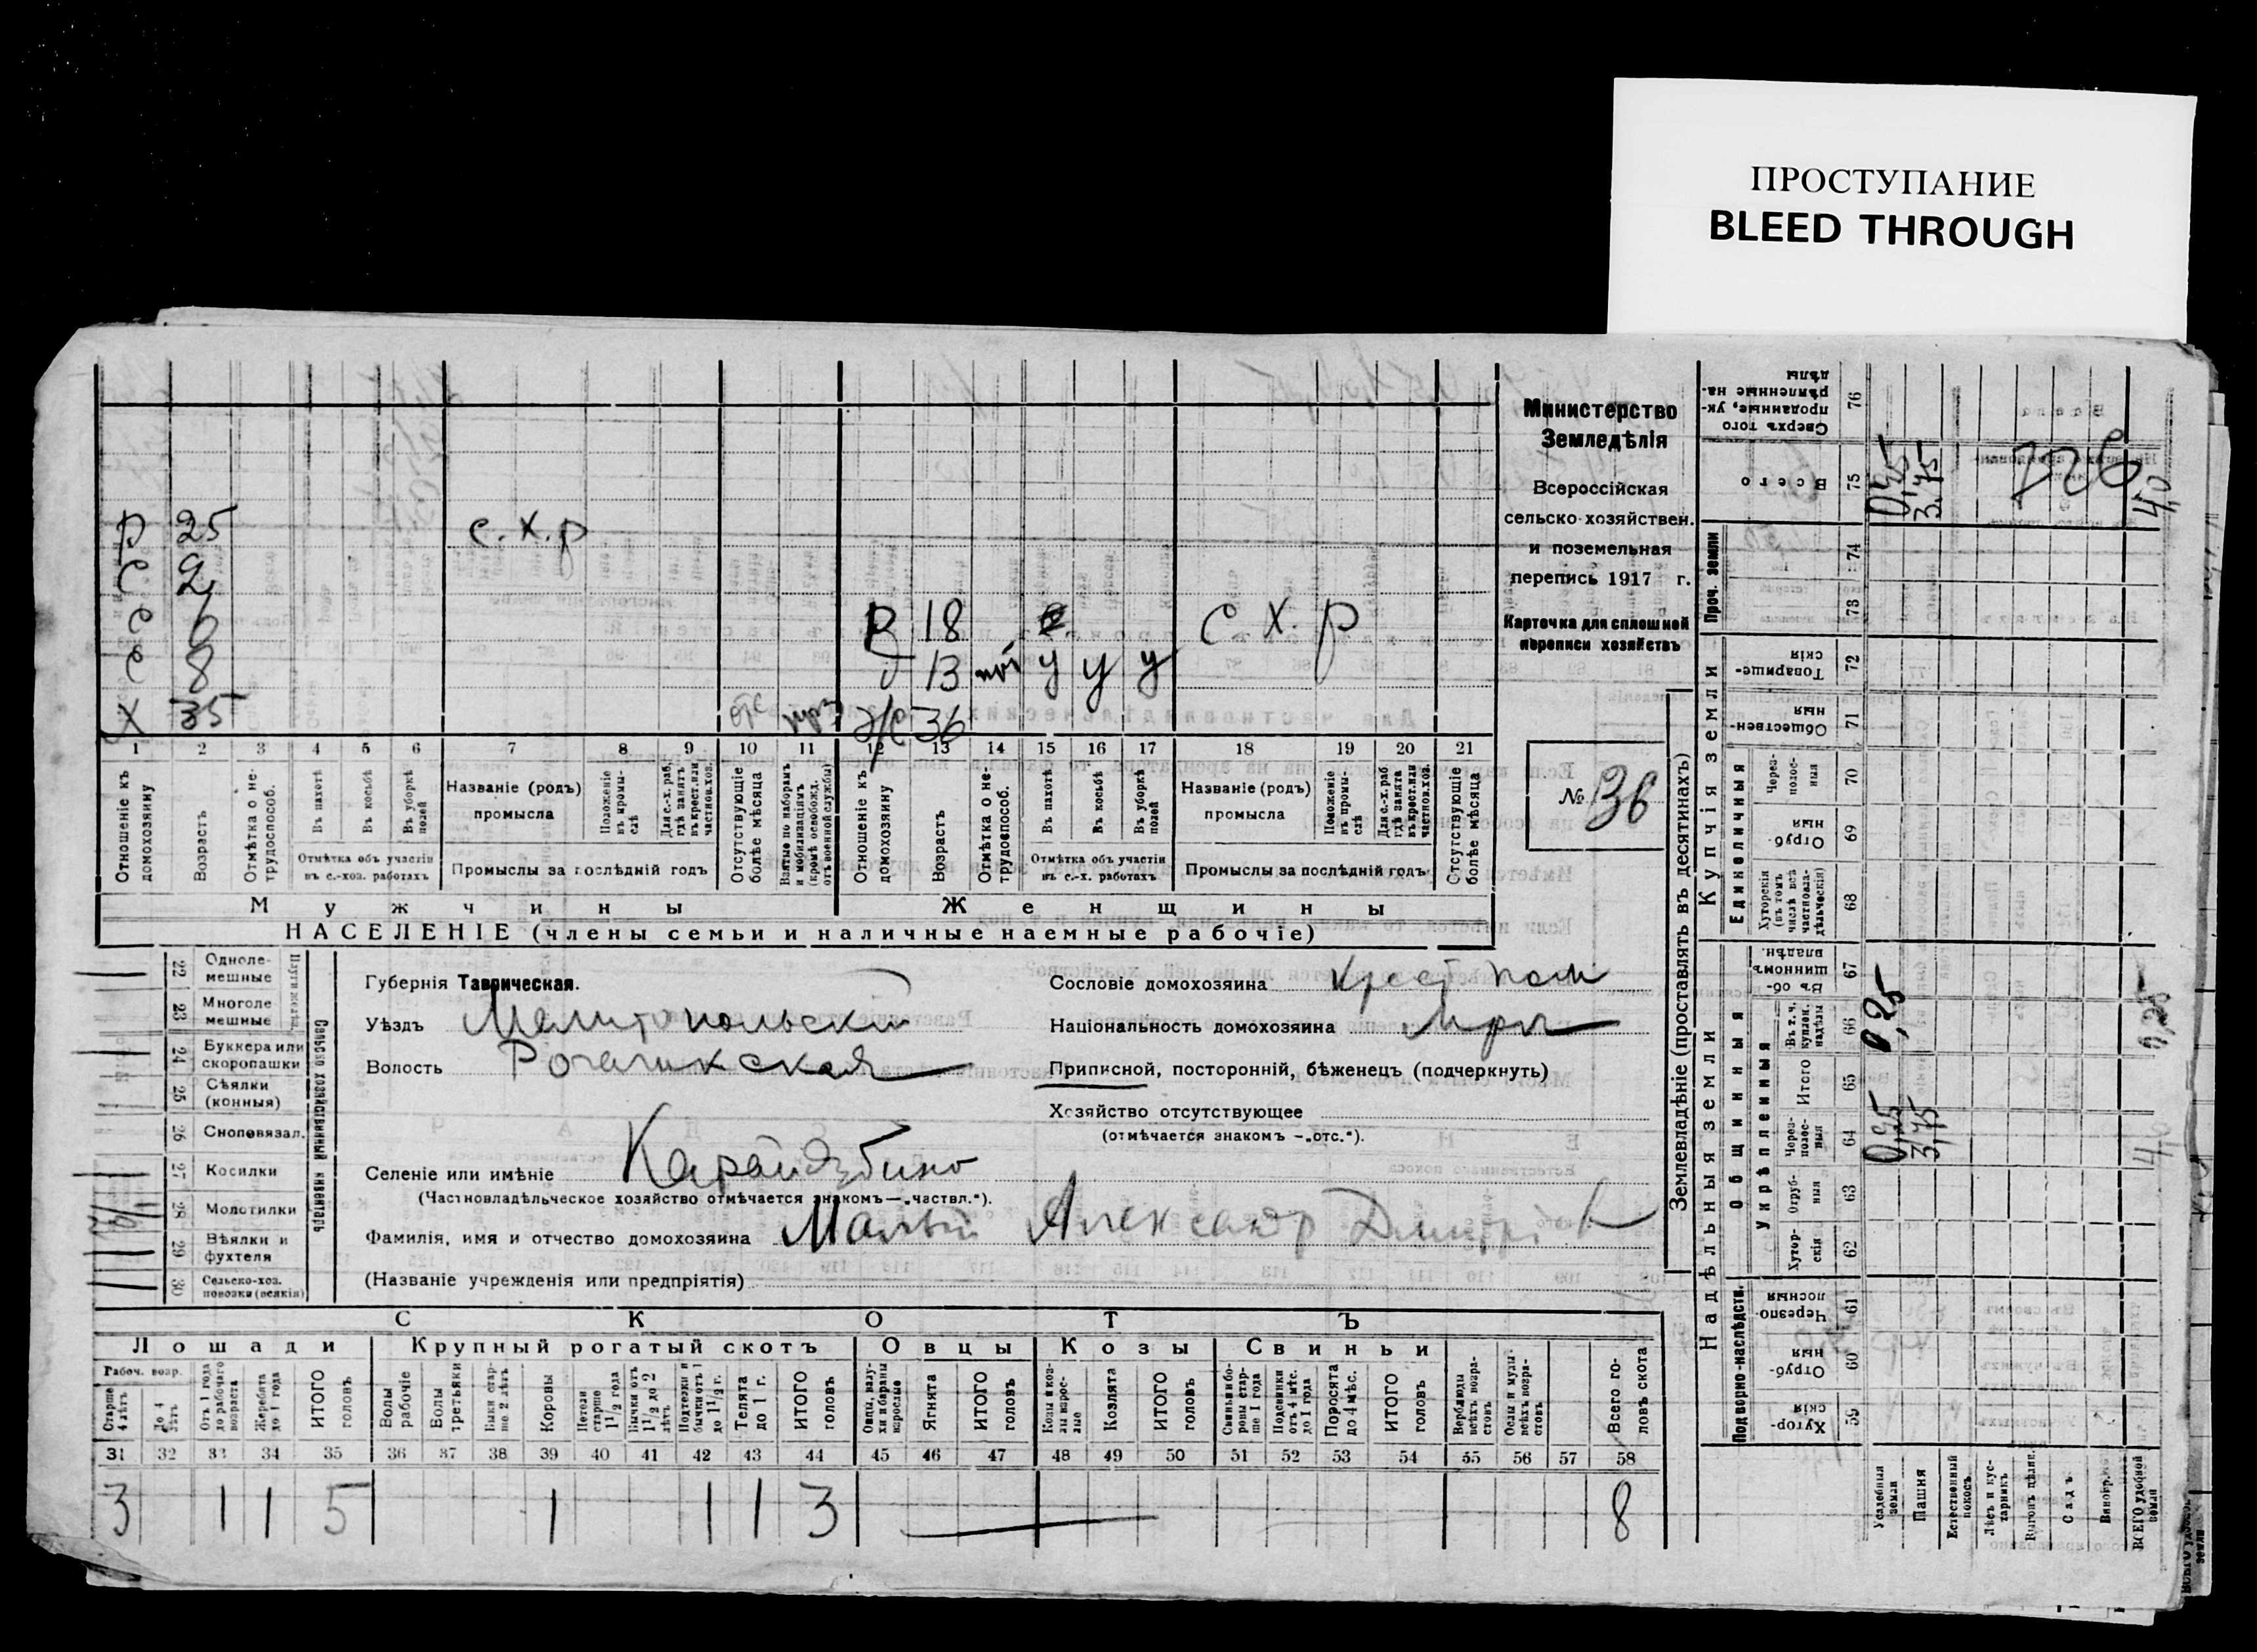 ПРОСТУПАНИЕ
BLEED THROUGH
Министерство
Земледѣлія
Всероссійская
сельско-хозяйствен.
и поземельная
перепись 1917 г.
Карточка для сплошной
переписи хозяйствъ
№ 36
р 25 с.х.р
с 2
с 6
с 8
х 35 отс
р 18 с х. р
13 у у у
36
1 2 3 4 5 6 7 8 9 10 11 12 13 14 15 16 17 18 19 20 21
Отношеніе къ домохозяину
Возрастъ
Отмѣтка о не-трудоспособ.
Въ пахотѣ
Въ косьбѣ
Въ уборкѣ полей
Отмѣтка объ участіи въ с.-хоз. работахъ
Названіе (родъ) промысла
Положеніе въ промы-слѣ
Для с.-х. раб. гдѣ занятъ въ крест. или частнов. хоз.
Промыслы за послѣдній годъ
Отсутствующіе болѣе мѣсяца
Взятые по наборамъ и мобилизаціямъ (кромѣ освобожд. отъ военной службы)
Отношеніе къ домохозяину
Возрастъ
Отмѣтка о не-трудоспособ.
Въ пахотѣ
Въ косьбѣ
Въ уборкѣ полей
Отмѣтка объ участіи въ с.-х. работахъ
Названіе (родъ) промысла
Положеніе въ промы-слѣ
Для с.-х. раб. гдѣ занята въ крест. или частнов. хоз.
Промыслы за послѣдній годъ
Отсутствующіе болѣе мѣсяца
Мужчины
Женщины
НАСЕЛЕНІЕ (члены семьи и наличные наемные рабочіе)
22 Одноле-мешные
23 Многоле мешные
24 Буккера или скоропашки
25 Сѣялки (конныя)
26 Сноповязал.
27 Косилки
28 Молотилки
29 Вѣялки и фухтеля
30 Сельско-хоз. повозки (всякія)
Сельско хозяйственный инвентарь
Губернія Таврическая.
Уѣздъ Мелитопольскій
Волость Рогачикская
Селеніе или имѣніе Карайдубино
(Частновладѣльческое хозяйство отмѣчается знакомъ—„частвл.“).
Фамилія, имя и отчество домохозяина Малый Александр Дмитрі
(Названіе учрежденія или предпріятія)
Сословіе домохозяина крест
Національность домохозяина
Приписной, посторонній, бѣженецъ (подчеркнуть)
Хозяйство отсутствующее
(отмѣчается знакомъ —„отс.“).
СКОТЪ
Лошади
Крупный рогатый скотъ
Овцы
Козы
Свиньи
Рабоч. возр.
Старше 4 лѣтъ
До 4 лѣтъ
Отъ 1 года до рабочаго возраста
Жеребята до 1 года
ИТОГО головъ
Волы рабочіе
Волы третьяки
Быки стар-ше 2 лѣтъ
Коровы
Нетели старше 1½ года
Бычки отъ 1½ до 2 лѣтъ
Подтелки и бычки отъ 1 до 1½ г.
Телята до 1 г.
ИТОГО головъ
Овцы, валу-хи и бараны взрослые
Ягнята
ИТОГО головъ
Козы и коз-лы взрос-лые
Козлята
ИТОГО головъ
Свиньи и бо-ровы стар-ше 1 года
Подсвинки отъ 4 мѣс. до 1 года
Поросята до 4 мѣс.
ИТОГО головъ
Верблюды всѣхъ возра-стовъ
Ослы и мулы всѣхъ возра-стовъ
Всего го-ловъ скота
31 32 33 34 35 36 37 38 39 40 41 42 43 44 45 46 47 48 49 50 51 52 53 54 55 56 57 58
3 1 1 5 1 1 1 3 8
Землевладѣніе (проставлять въ десятинахъ)
Надѣльныя земли
Купчія земли
Проч. земли
Подворно-наслѣдств.
Общинныя
Укрѣпленныя
Единоличныя
Хутор-скія 59
Отруб-ныя 60
Черезпо-лосныя 61
Хутор-скія 62
Отруб-ныя 63
Через-полос-ныя 64
Итого 65
Въ т. ч. куплен. надѣлы 66
Въ об-щинномъ владѣн. 67
Хуторскія (въ томъ числѣ всѣ частновла-дѣльческія) 68
Отруб-ныя 69
Через-полос-ныя 70
Обществен-ныя 71
Товарище-скія 72
73
74
Всего 75
Сверхъ того проданные, ук-рѣпленные на-дѣлы 76
Усадебныя земли
Пашня
Естественный покосъ
Лѣсъ и кус-тарникъ
Выгонъ дѣлян.
Садъ
Виноградн.
ВСЕГО удобной земли
0,25
3,75
0,25
3,75
4,0
326